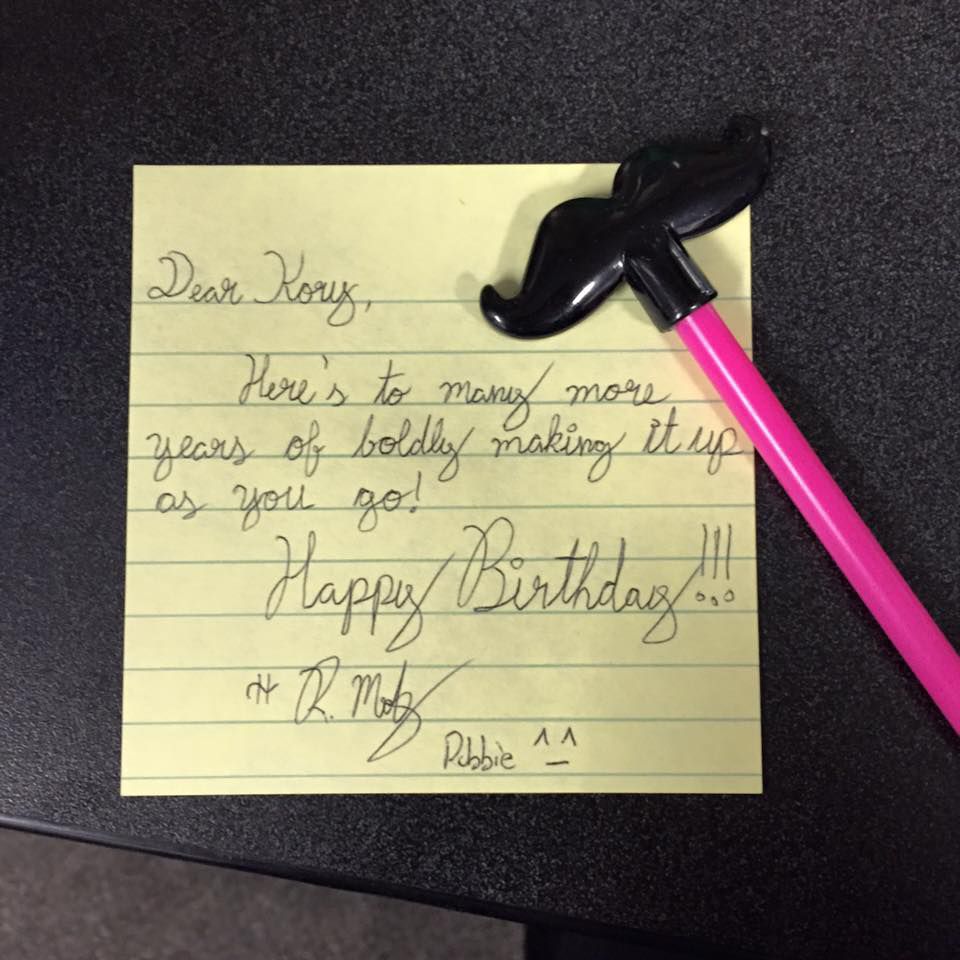 Dear Kory,
Here's to many more
years of boldly making it up
as you go!
Happy Birthday!!!
R.
Debbie ^_^